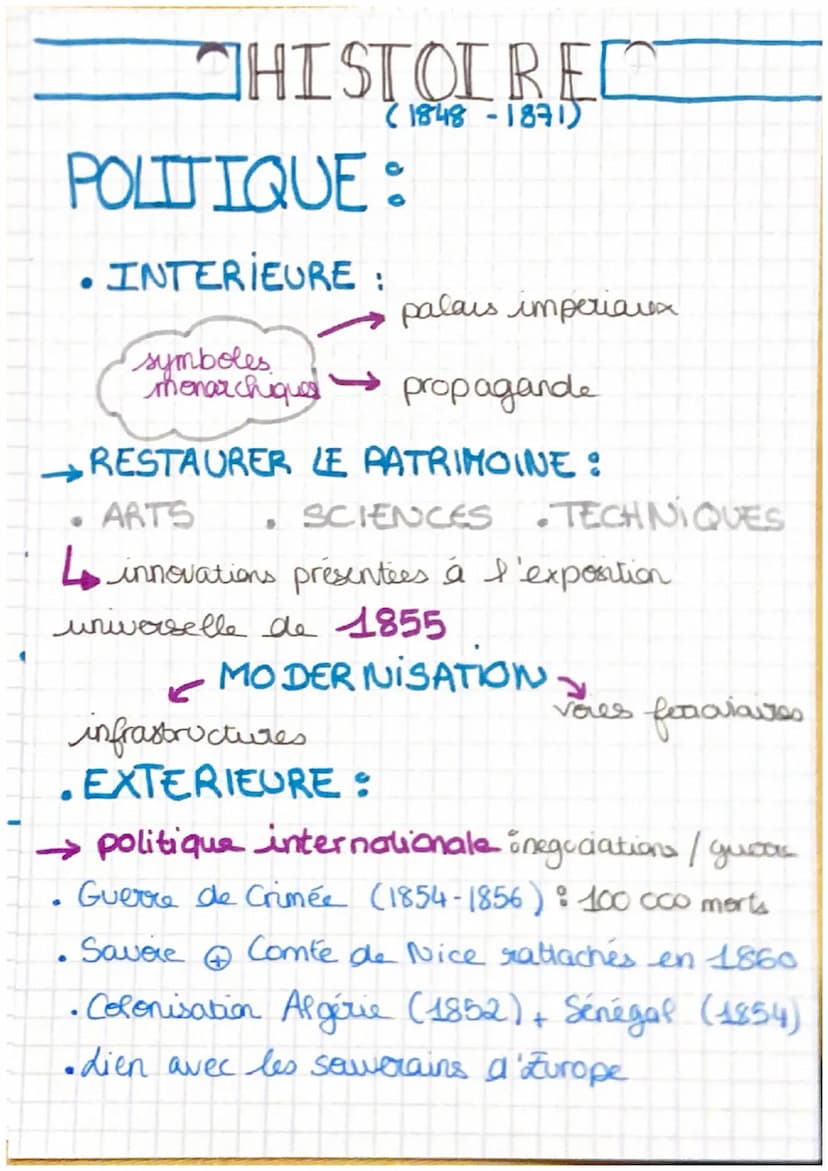 HISTOIRE
(1848 - 1871)
POLITIQUE :
• INTERIEURE :
palais impériaux
symboles
monarchiques
→ propagande
→ RESTAURER LE PATRIMOINE :
• ARTS • SCIENCES • TECHNIQUES
↳ innovations présentées à l'exposition
universelle de 1855
MODERNISATION
voies ferroviaires
infrastructures
• EXTERIEURE :
→ politique internationale : negociations / guerre
• Guerre de Crimée (1854-1856) : 100 000 morts
• Savoie ⊕ Comté de Nice rattachés en 1860
• Colonisation Algérie (1852) + Sénégal (1854)
• lien avec les souverains d'Europe